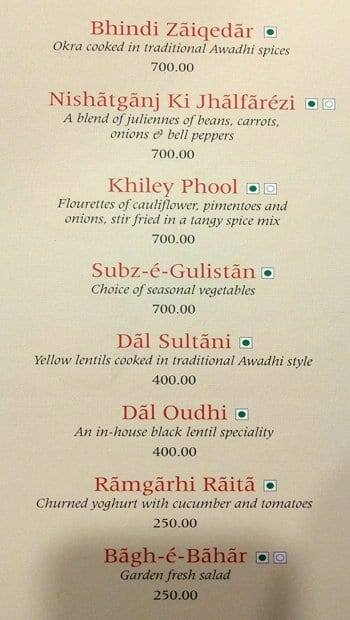 Bhindi Zãiqedãr
Okra cooked in traditional Awadhi spices
700.00
Nishãtgãnj Ki Jhãlfãrézi
A blend of juliennes of beans, carrots,
onions & bell peppers
700.00
Khiley Phool
Flourettes of cauliflower, pimentoes and
onions, stir fried in a tangy spice mix
700.00
Subz-é-Gulistãn
Choice of seasonal vegetables
700.00
Dãl Sultãni
Yellow lentils cooked in traditional Awadhi style
400.00
Dãl Oudhi
An in-house black lentil speciality
400.00
Rãmgãrhi Rãitã
Churned yoghurt with cucumber and tomatoes
250.00
Bãgh-é-Bãhãr
Garden fresh salad
250.00